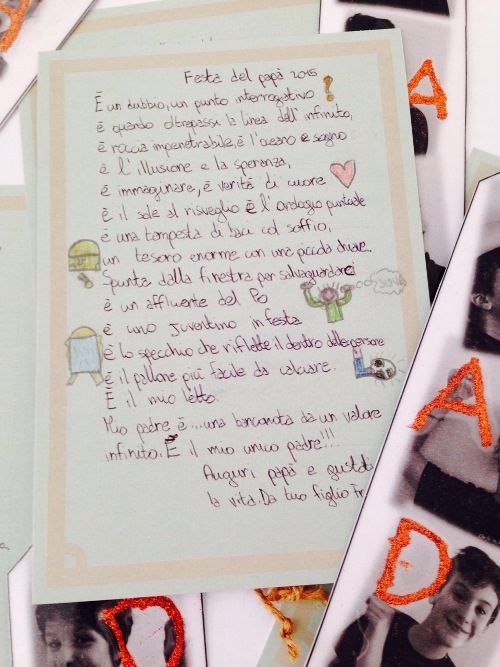 Festa del papà 2015
È un dubbio, un punto interrogativo ?
è quando oltrepassi la linea dell'infinito,
è roccia impenetrabile, è l'oceano e sogno
è l'illusione e la speranza,
è immaginare, è verità di cuore
è il sole al risveglio è l'orologio puntuale
è una tempesta di baci col soffio,
un tesoro enorme con una piccola chiave.
Spunta dalla finestra per salvaguardarci
è un affluente del Po
è uno Juventino in festa
è lo specchio che riflette il dentro delle persone
è il pallone più facile da calciare.
È il mio letto.
Mio padre è... una banconota da un valore
infinito. È il mio unico padre!!!
Auguri papà e gustati
la vita. Da tuo figlio Fr
A
A
D
D